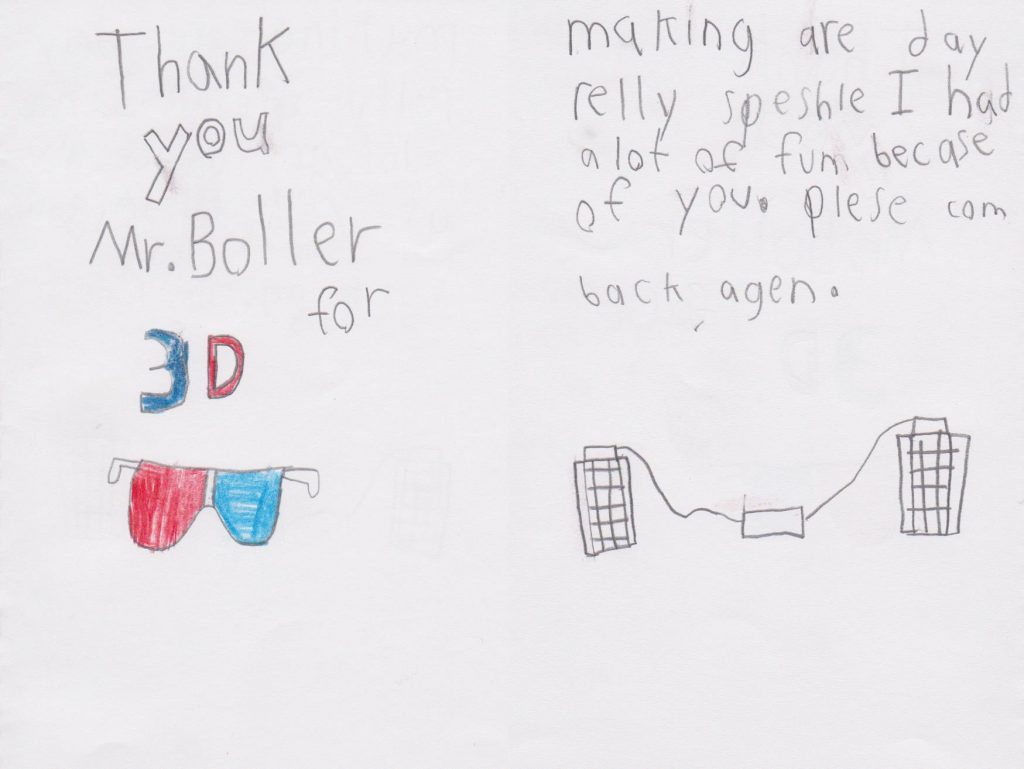 Thank
you
Mr. Boller
for
3D
making are day
relly speshle I had
a lot of fun becase
of you. plese com
back agen.